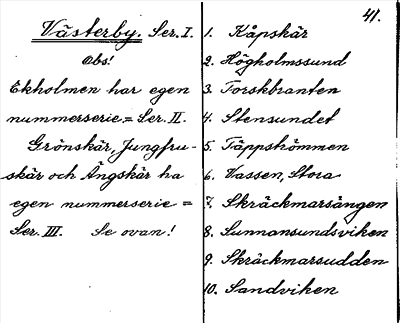 Västerby. Ser. I.
Obs!
Ekholmen har egen
nummerserie = Ser. II.
Grönskär, Jungfru-
skär och Ängskär ha
egen nummerserie =
Ser. III. Se ovan!
41.
1. Kåpskär
2. Högholmssund
3. Torskbranten
4. Stensundet
5. Täppshömmen
6. Vassen, Stora
7. Skräckmarsängen
8. Sunnansundsviken
9. Skräckmarsudden
10. Sandviken